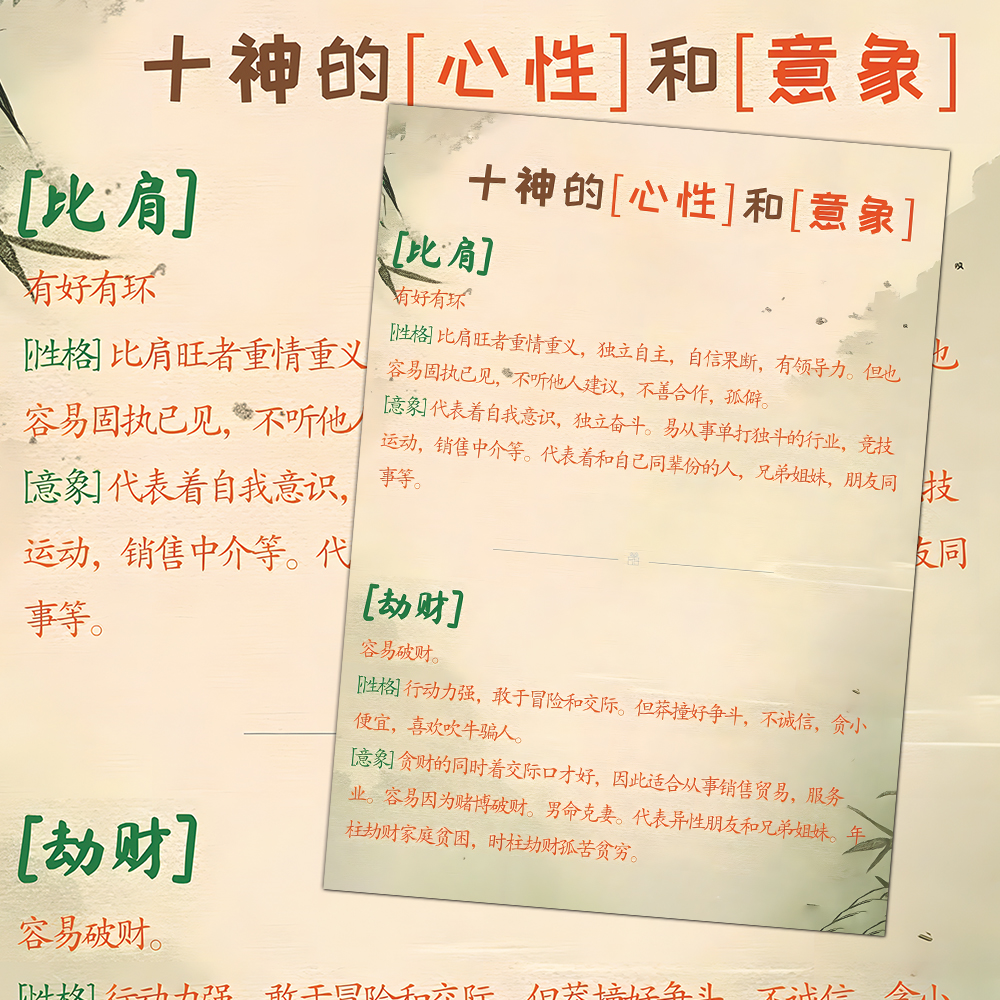 十神的[心性]和[意象]
[比肩]
有好有环
[性格]比肩旺者重情重义 也
容易固执已见，不听他
[意象]代表着自我意识， 技
运动，销售中介等。代 友同
事等。
[劫财]
容易破财。
[性格]行动力强，敢于冒险和交际。但莽撞好争斗，不诚信，贪小
十神的[心性]和[意象]
[比肩]
有好有环
[性格]比肩旺者重情重义，独立自主，自信果断，有领导力。但也
容易固执已见，不听他人建议，不善合作，孤僻。
[意象]代表着自我意识，独立奋斗。易从事单打独斗的行业，竞技
运动，销售中介等。代表着和自己同辈份的人，兄弟姐妹，朋友同
事等。
[劫财]
容易破财。
[性格]行动力强，敢于冒险和交际。但莽撞好争斗，不诚信，贪小
便宜，喜欢吹牛骗人。
[意象]贪财的同时着交际口才好，因此适合从事销售贸易，服务
业。容易因为赌博破财。男命克妻。代表异性朋友和兄弟姐妹。年
柱劫财家庭贫困，时柱劫财孤苦贫穷。